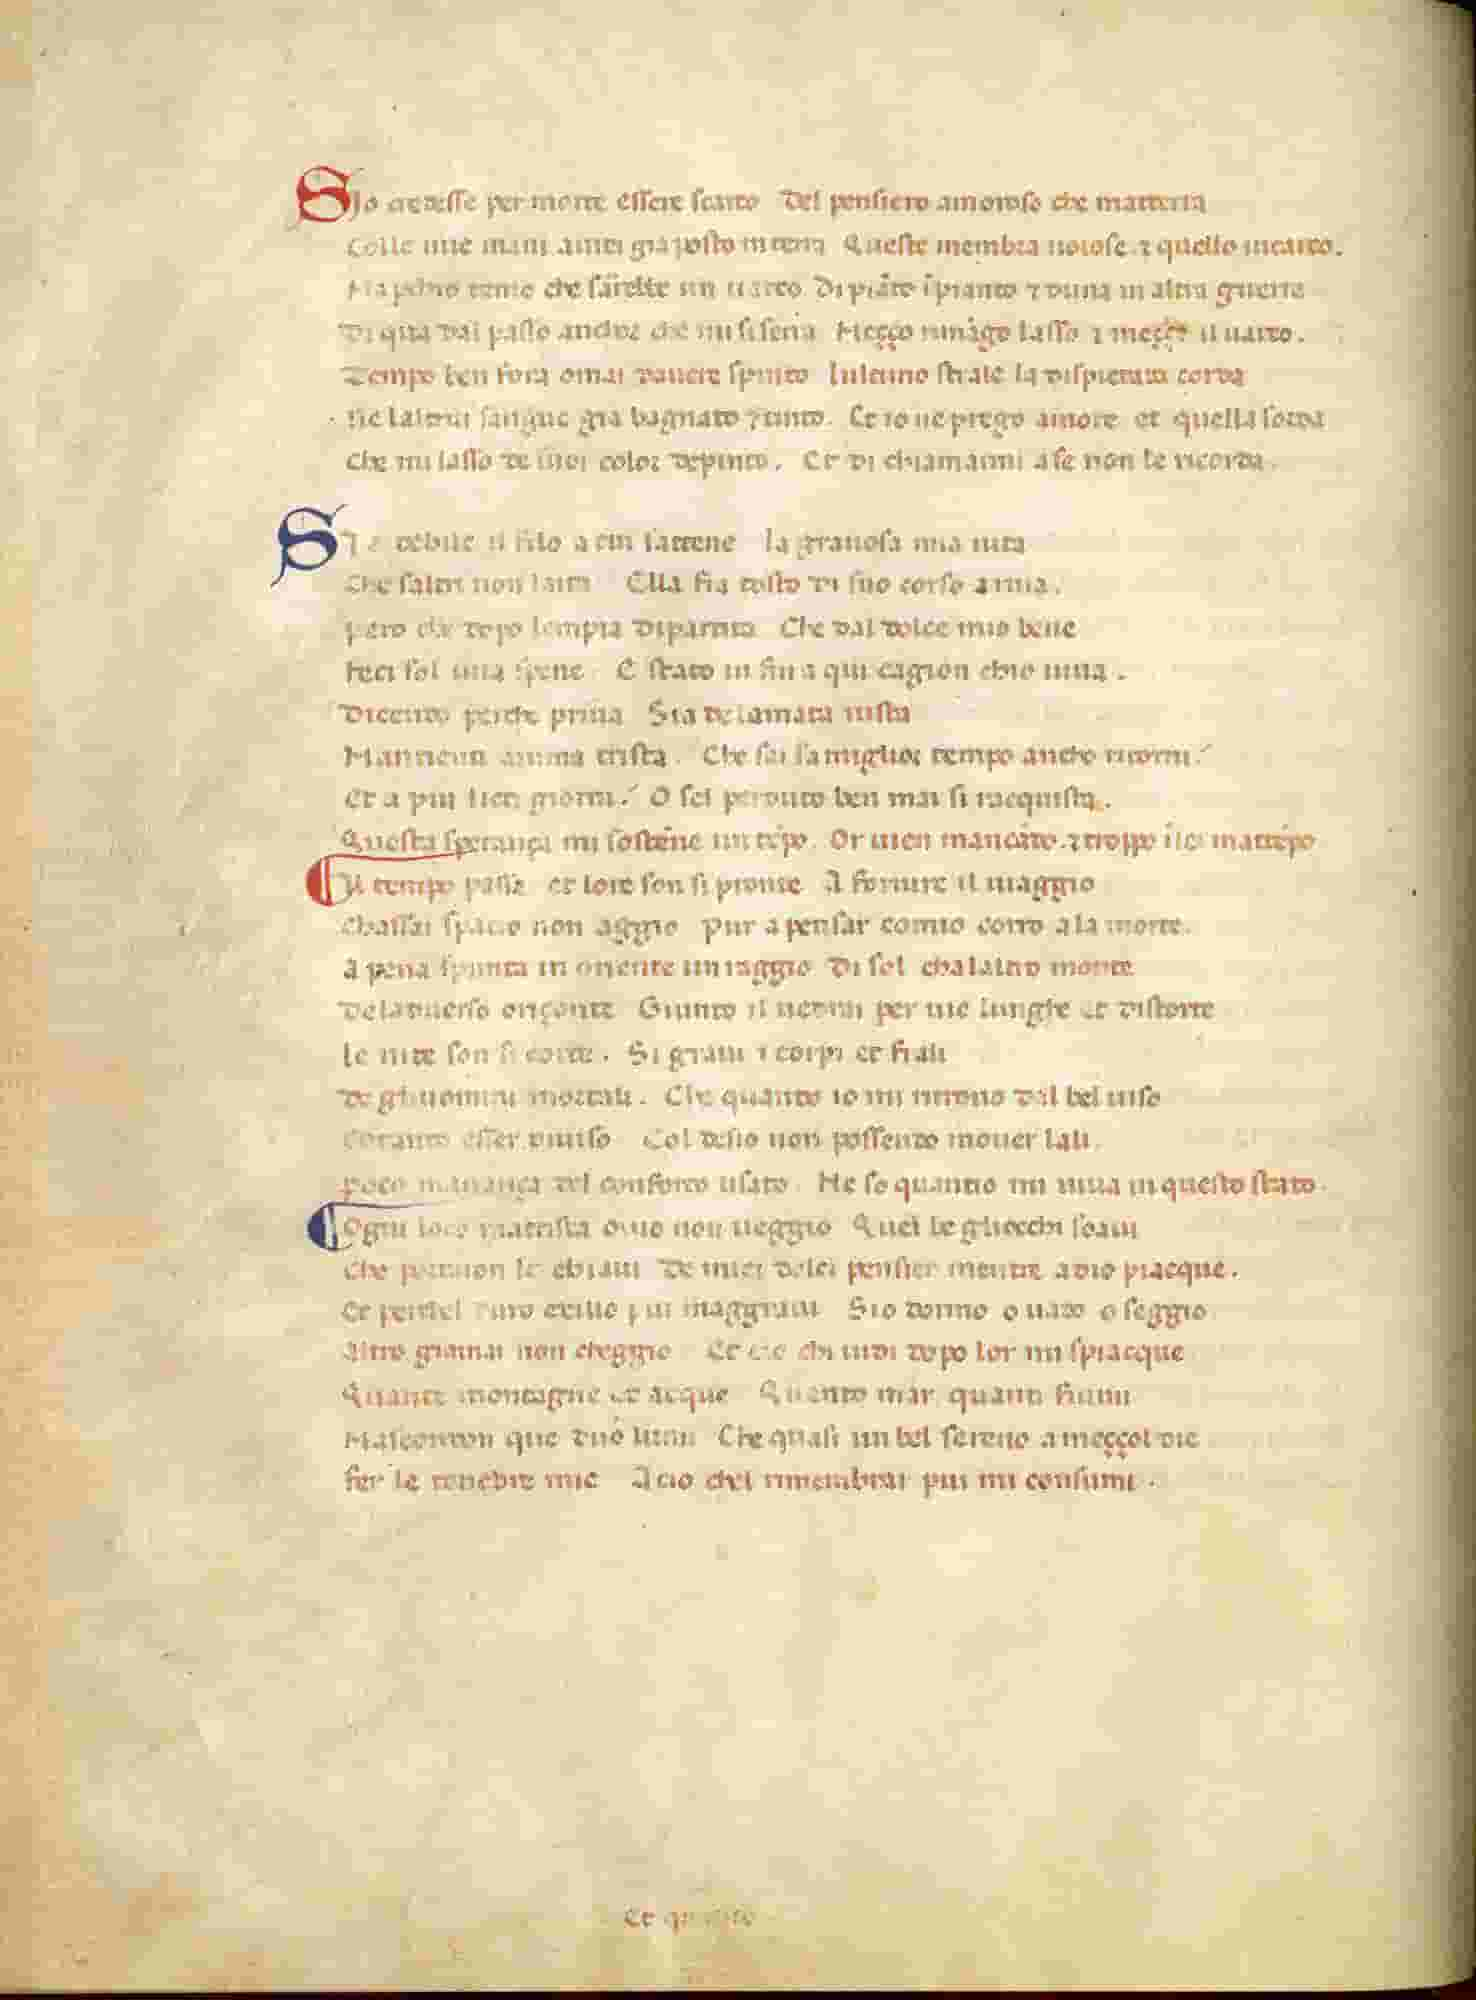 Sio credesse per morte essere scarco Del pensiero amoroso che matterra
Colle mie mani aurei gia posto in terra Queste membra noiose ⁊ quello incarco.
Ma perchio temo che sarebbe un uarco Di piāto ī pianto ⁊ duna in altra guerra
Di qua dal passo anchor che mi si serra Meçço rimāgo lasso ⁊ meçço il uarco.
Tempo ben fora omai dauere spinto lultimo strale la dispietata corda
Ne laltrui sangue gia bagnato ⁊ tinto. Et io ne prego amore et quella sorda
Che mi lasso de suoi color depinto. Et di chiamarmi a se non le ricorda.
SI e debile il filo a cui sattene la grauosa mia uita
Che saltri non laita Ella fia tosto di suo corso a riua.
pero che dopo lempia dipartita Che dal dolce mio bene
feci sol una spene E stato in fin a qui cagion chio uiua.
Dicendo perche priua Sia de lamata uista
Mantienti anima trista. Che sai sa miglior tempo ancho ritorni?
Et a piu lieti giorni? O sel perduto ben mai si racquista.
Questa sperança mi sostēne un tēpo. Or uien mancādo ⁊ troppo ī lei mattēpo
Il tempo passa et lore son si pronte A fornire il uiaggio
Chassai spacio non aggio pur a pensar comio corro a la morte.
A pena spunta in oriente un raggio Di sol chalaltro monte
Deladuerso oriçonte Giunto il uedrai per uie lunghe et distorte
le uite son si corte. Si graui i corpi et frali
De gli uomini mortali. Che quando io mi ritrouo dal bel uiso
Cotanto esser diuiso Col desio non possendo mouer lali.
poco mauança del conforto usato. Ne so quantio mi uiua in questo stato.
Ogni loco mattrista ouio non ueggio Quei be gliocchi soaui
Che portaron le chiaui De miei dolci pensier mentre a dio piacque.
Et perchel duro exilio piu maggraui Sio dormo o uado o seggio
Altro giamai non cheggio Et cio chi uidi dopo lor mi spiacque
Quante montagne et acque Quanto mar quanti fiumi
Mascondon que duo lumi Che quasi un bel sereno a meççol die
fer le tenebre mie Acio chel rimembrar piu mi consumi.
Et quanto